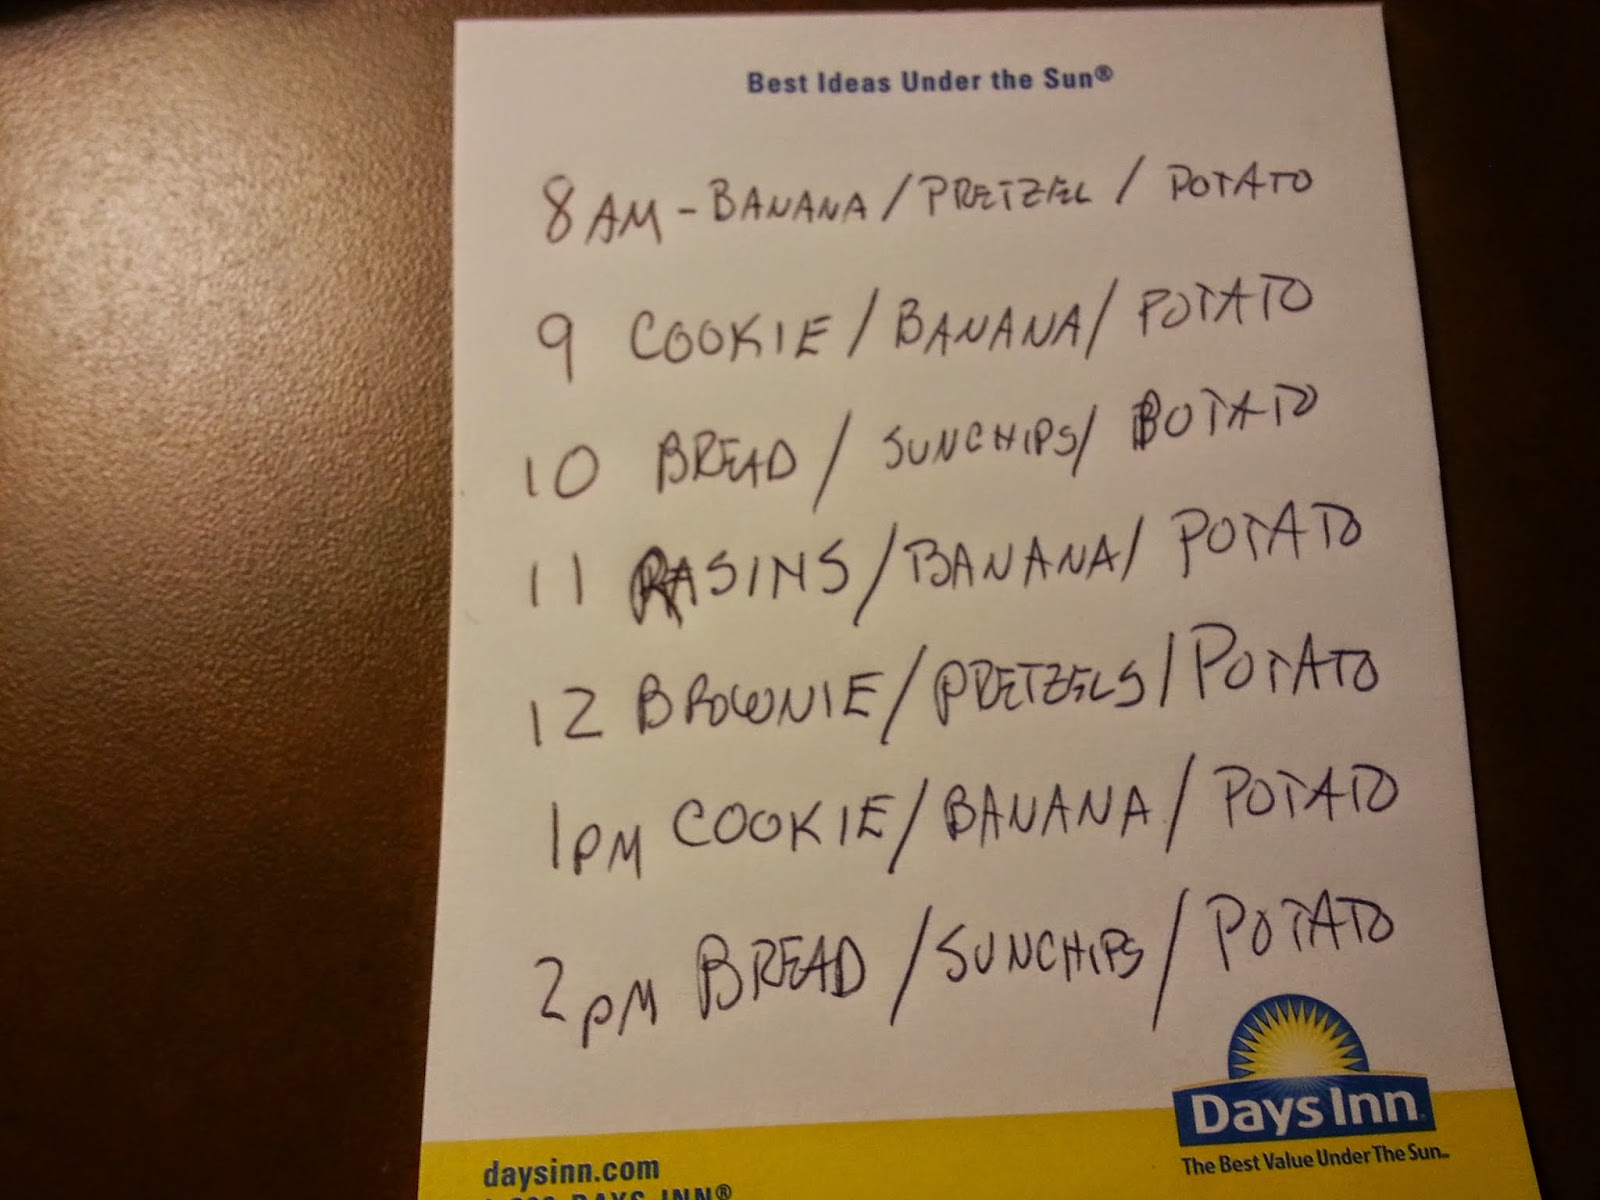 Best Ideas Under the Sun®
8 AM - BANANA / PRETZEL / POTATO
9 COOKIE / BANANA / POTATO
10 BREAD / SUNCHIPS / BOTATO
11 RASINS / BANANA / POTATO
12 BROWNIE / PRETZELS / POTATO
1PM COOKIE / BANANA / POTATO
2PM BREAD / SUNCHIPS / POTATO
Days Inn
The Best Value Under The Sun™
daysinn.com
DAYS INN®